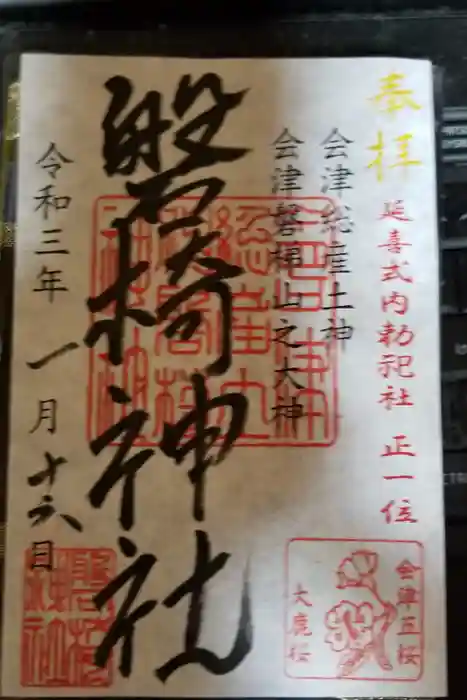 奉拝
延喜式内勅祀社 正一位
会津総産土神
会津磐梯山之大神
磐椅神社
令和三年 一月十六日
会津五桜
大鹿桜